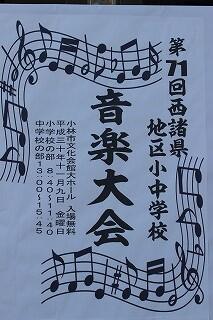 第71回西諸県
地区小中学校
音楽大会
小林市文化会館大ホール 入場無料
平成三十年十一月九日 金曜日
小学校の部 8:40〜11:40
中学校の部 13:00〜15:45